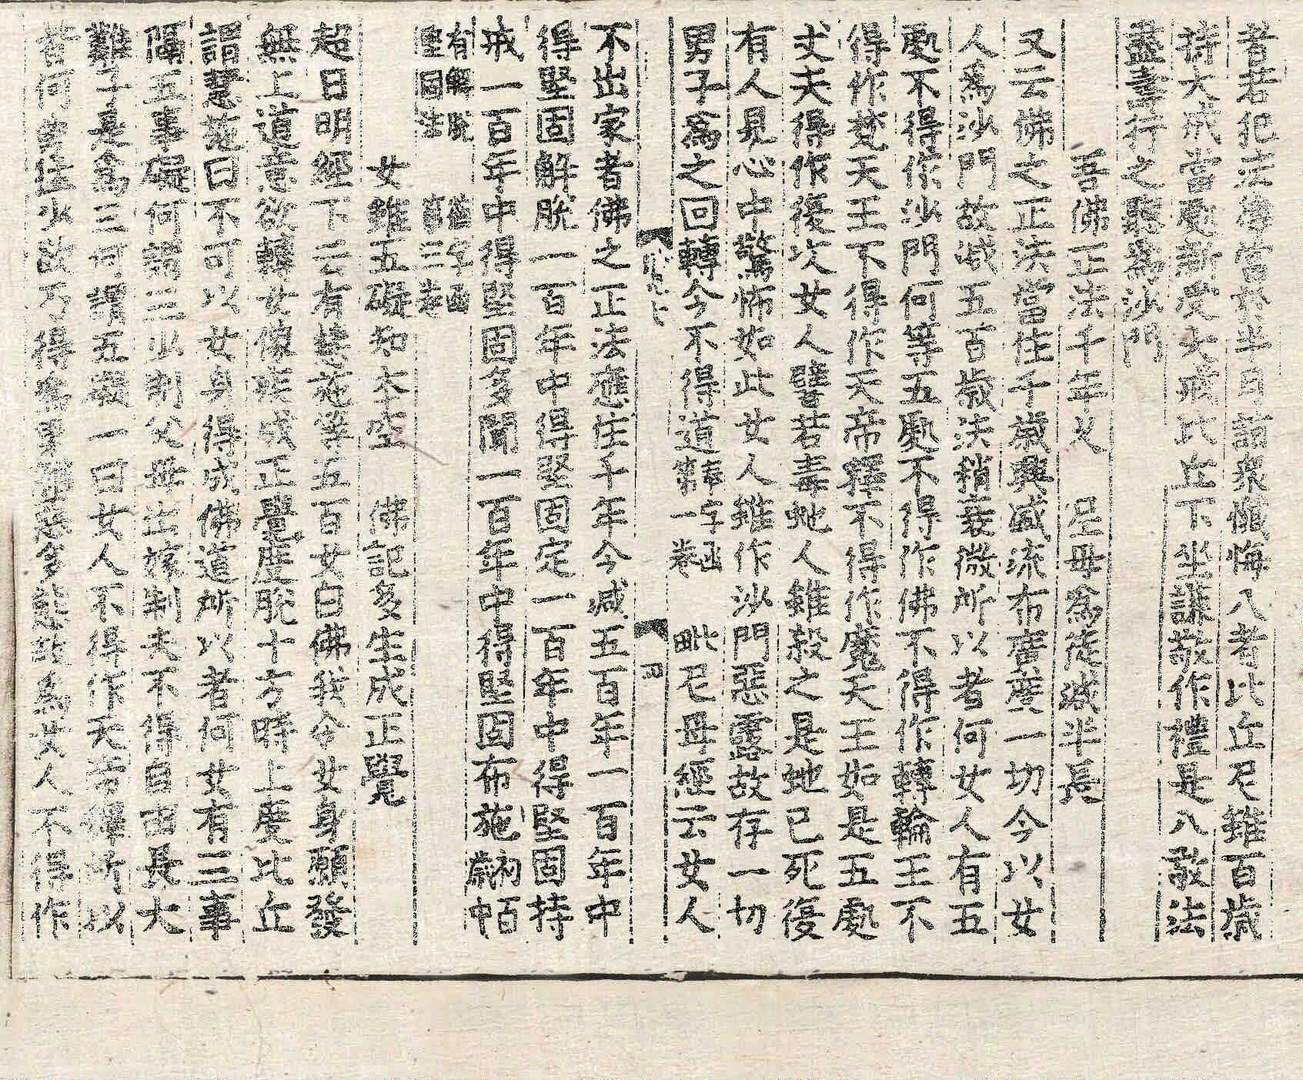 者若犯法律當於半月詣衆懺悔八者比丘尼雖百歲
持大戒當處新受大戒比丘下坐謙敬作禮是八敬法
盡壽行之聽為沙門
吾佛正法千年久 呈母爲徒減半長
又云佛之正法當住千歲興盛流布廣度一切今以女
人爲沙門故減五百歲法稍衰微所以者何女人有五
處不得作沙門何等五處不得作佛不得作轉輪王不
得作梵天王不得作天帝釋不得作魔天王如是五處
丈夫得作復次女人譬若毒虵人雖殺之是虵已死復
有人見心中驚怖如此女人雖作沙門惡露故存一切
男子爲之回轉今不得道奉字函第一卷 毗尼母經云女人
不出家者佛之正法應住千年今減五百年一百年中
得堅固解脫一百年中得堅固定一百年中得堅固持
戒一百年中得堅固多聞一百年中得堅固布施初百歲中
有解脫堅固法 第三卷
女雖五礙知本空 佛記多生成正覺
超日明經下云有慧施等五百女白佛我今女身願發
無上道意欲轉女像疾成正覺度脫十方時上度比丘
謂慧施曰不可以女身得成佛道所以者何女有三事
隔五事礙何謂三少制父母出嫁制夫不得自由長大
難子是爲三何謂五礙一曰女人不得作天帝釋所以
者何勇猛少欲乃得爲男雜惡多態故爲女人不得作